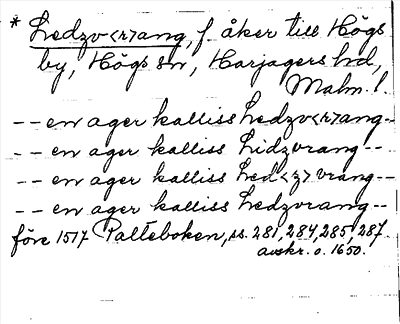 * Ledzv<r>ang, f. åker till Högs
by, Högs sn, Harjagers hd,
Malm. l.
-- en ager kalliss Ledzv<r>ang--
-- en ager kalliss Lidzvrang--
-- en ager kalliss Led<z>vrang--
-- en ager kalliss Ledzvrang--
före 1517 Palteboken, ss. 281, 284, 285, 287.
avskr. o. 1650.